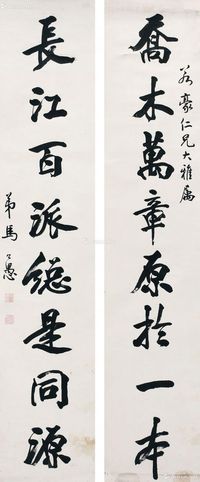 若豪仁兄大雅屬
喬木萬章原於一本
長江百派總是同源
弟馬公愚